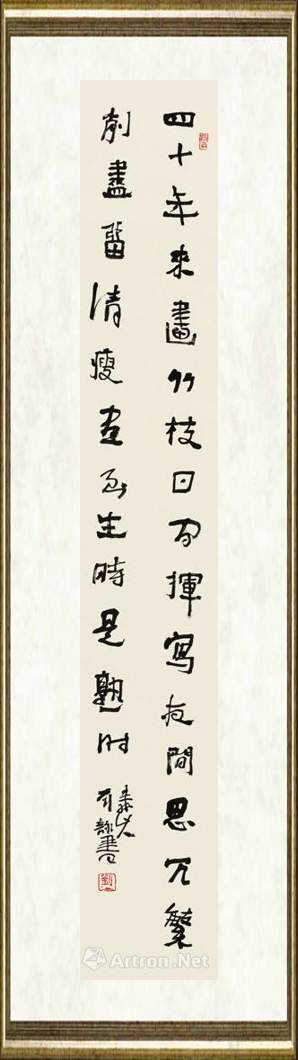 四十年来畫竹枝日间揮寫夜間思冗繁
削盡留清瘦画到生時是熟时
書
Artron.Net